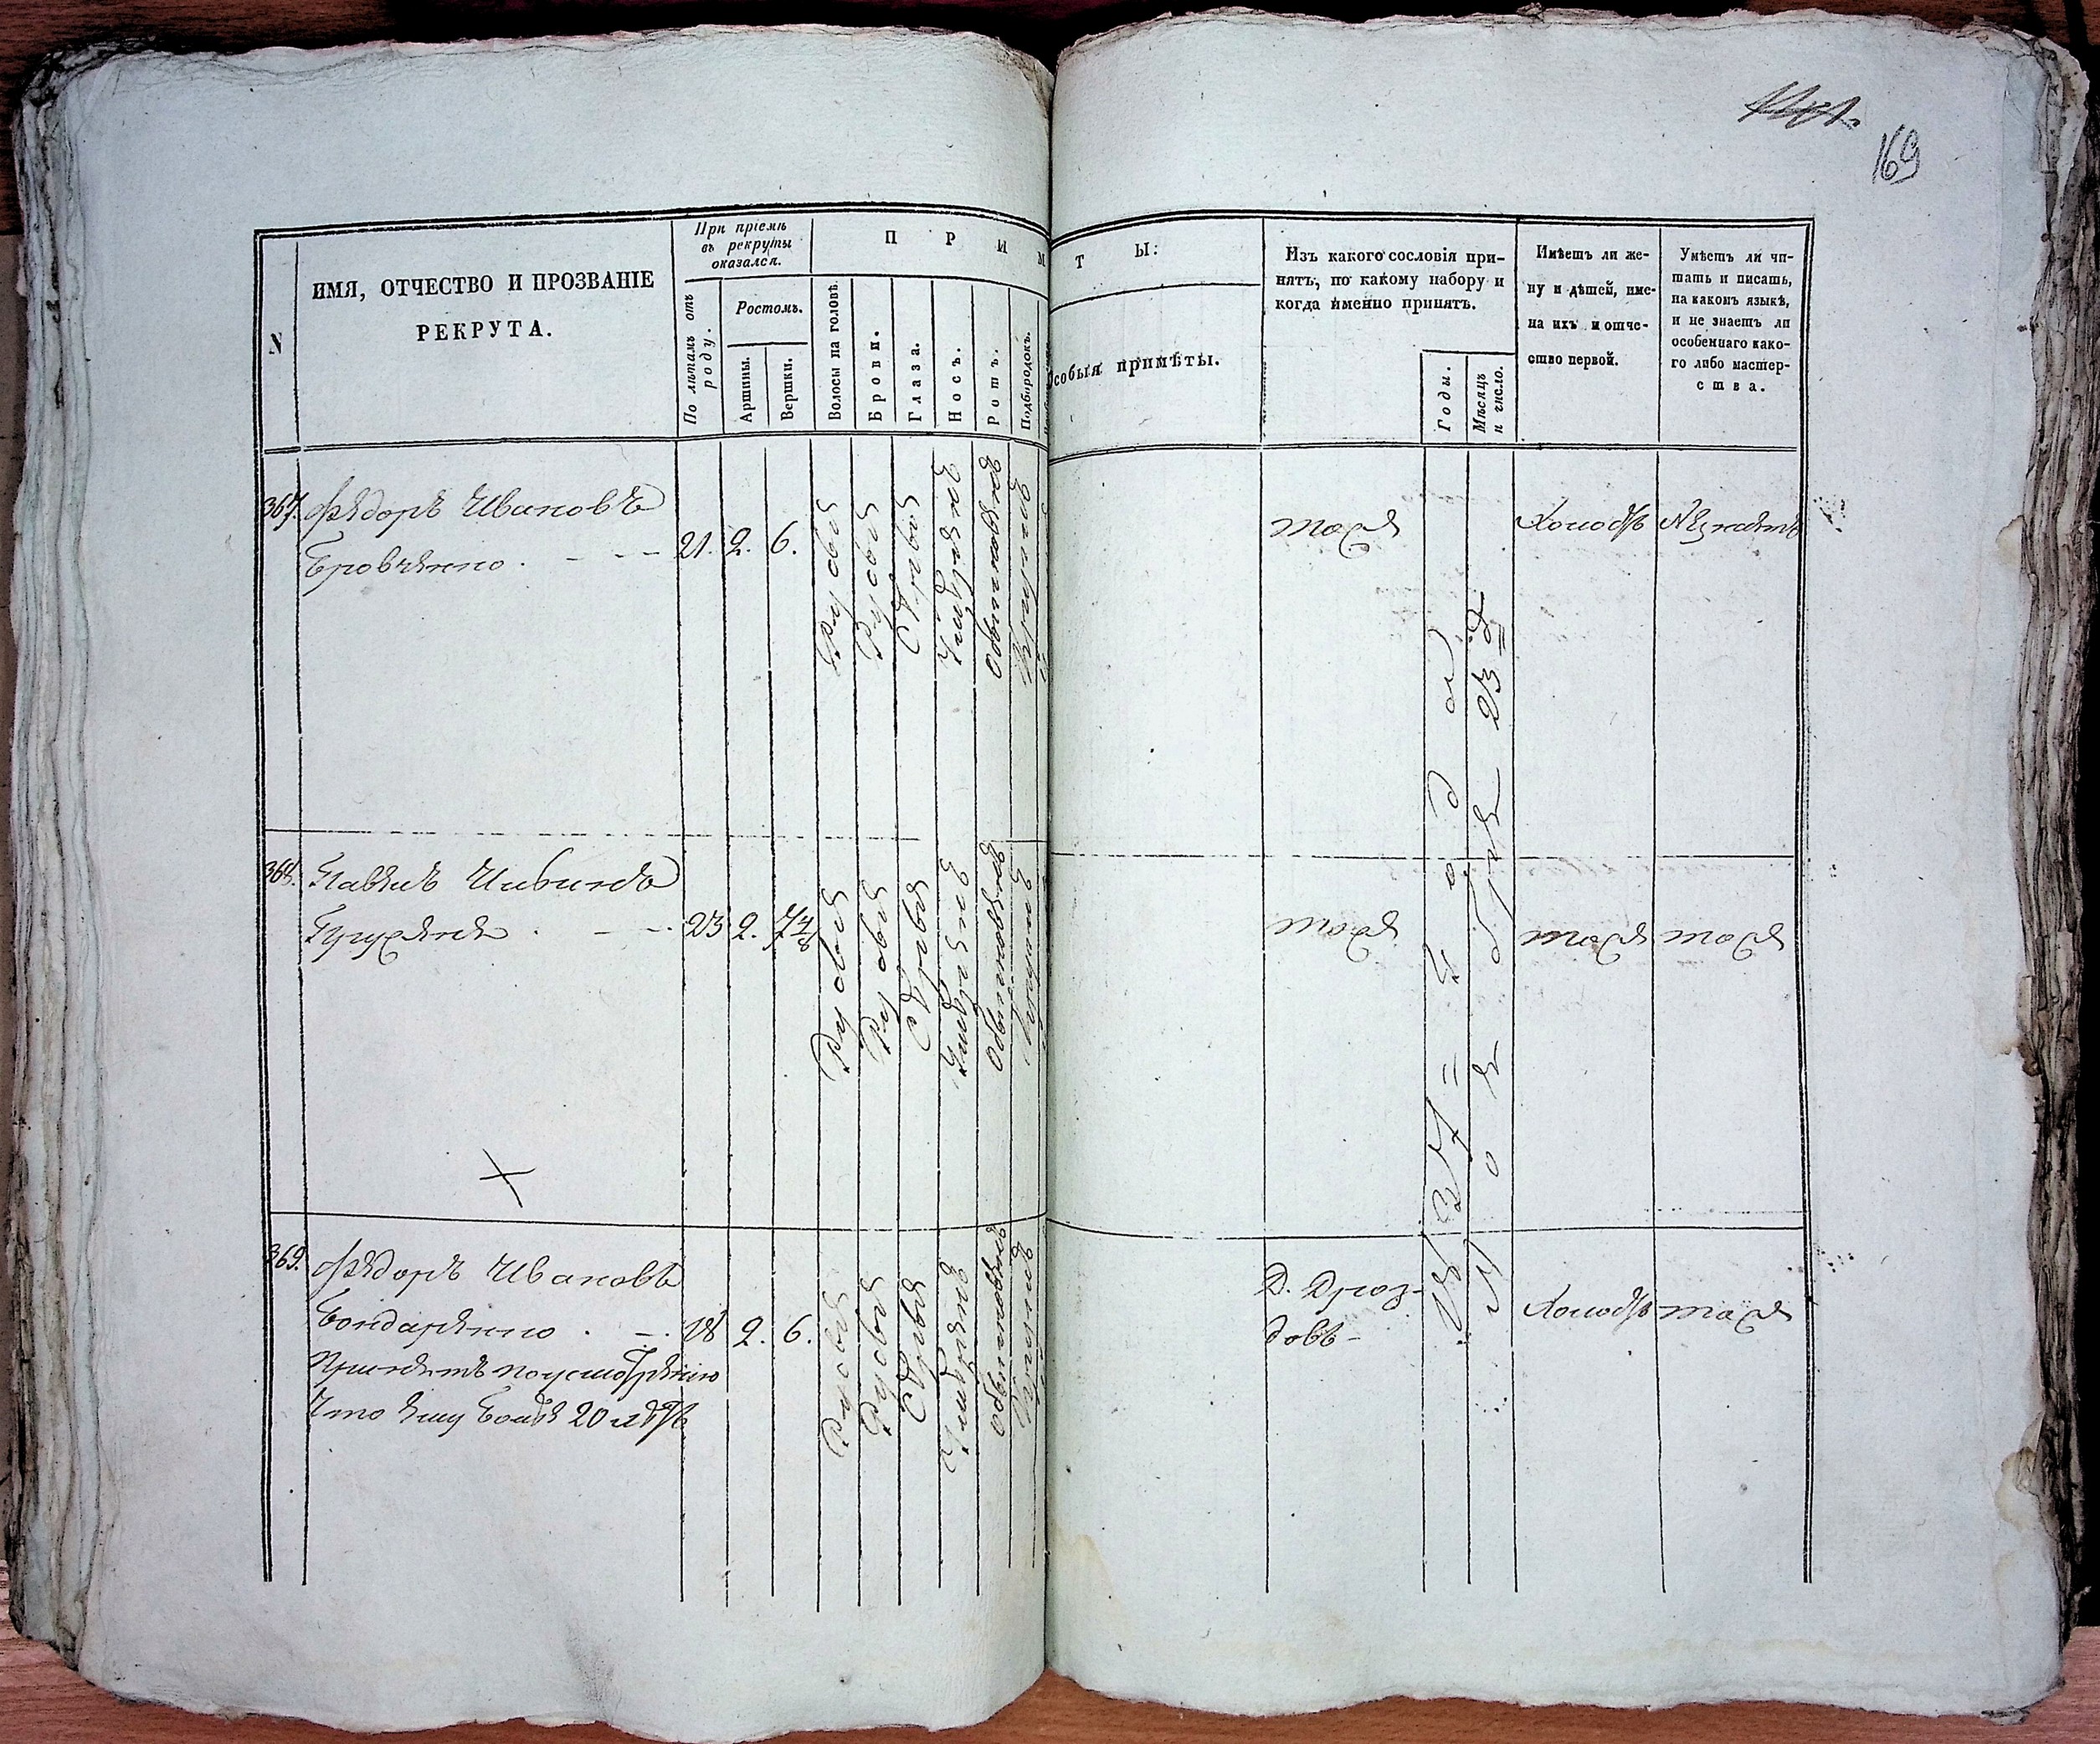 169
N
ИМЯ, ОТЧЕСТВО И ПРОЗВАНІЕ
РЕКРУТА.
При пріемѣ
въ рекруты
оказался.
По лѣтамъ отъ
роду.
Ростомъ.
Аршины.
Вершки.
П Р И М
Волосы на головѣ.
Брови.
Глаза.
Носъ.
Ротъ.
Подбородокъ.
Т Ы:
Особыя примѣты.
Изъ какого сословія при-
нятъ, по какому набору и
когда именно принятъ.
Годы.
Мѣсяцъ
и число.
Имѣетъ ли же-
ну и дѣтей, име-
на ихъ и отче-
ство первой.
Умѣетъ ли чи-
тать и писать,
на какомъ языкѣ,
и не знаетъ ли
особеннаго како-
го либо мастер-
ства.
367. Федоръ Ивановъ
Бровченко. 21. 2. 6.
Русыя
Русыя
Сѣрыя
Умѣренъ
обыкновенъ
Круглъ
тоже
Холостъ
Незнаетъ
368. Павелъ
23 2.
Русыя
Русыя
Сѣрыя
Умѣренъ
обыкновенъ
тоже
тоже
тоже
года
Ноября 23
369. Федоръ Ивановъ
Бондаренко 18 2. 6.
Принятъ по усмотрѣнію
Что ему более 20 лѣтъ
Русыя
Русыя
Сѣрыя
Умѣренъ
обыкновенъ
Круглъ
Д. Дроз-
довъ
Холостъ
тоже